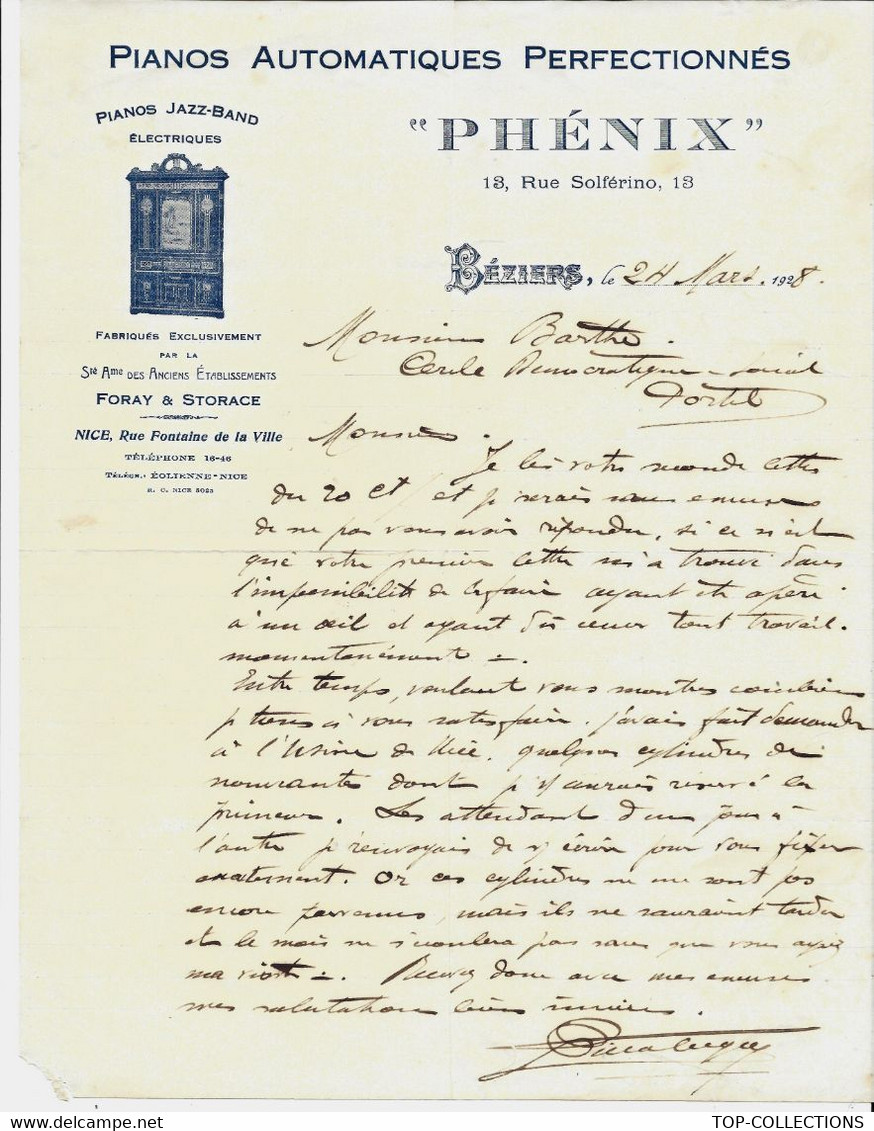 PIANOS AUTOMATIQUES PERFECTIONNÉS
PIANOS JAZZ-BAND
ÉLECTRIQUES
"PHÉNIX"
13, Rue Solférino, 13
BÉZIERS, le 24 Mars 1928.
FABRIQUÉS EXCLUSIVEMENT
PAR LA
Sté Ame DES ANCIENS ÉTABLISSEMENTS
FORAY & STORACE
NICE, Rue Fontaine de la Ville
TÉLÉPHONE 16-46
TÉLÉGR.: ÉOLIENNE-NICE
R. C. NICE 5023
Monsieur Barthe.
Cercle Démocratique - Social
Portel
Monsieur.
Je lis votre seconde lettre
du 20 ct/ et je serais sans excuses
de ne pas vous avoir répondu, si ce n'est
que votre première lettre m'a trouvé dans
l'impossibilité de le faire ayant été opéré
à un œil et ayant dû cesser tout travail.
momentanément -.
Entre temps, voulant vous montrer combien
je tiens à vous satisfaire. j'avais fait demander
à l'Usine de Nice. quelques cylindres de
nouveautés dont je v/ aurais réservé la
primeur. Les attendant d'un jour à
l'autre je renvoyais de v/ écrire pour vous fixer
exactement. Or ces cylindres ne me sont pas
encore parvenus, mais ils ne sauraient tarder
et le mois ne s'écoulera pas sans que vous ayez
ma visite -. Recevez donc avec mes excuses
mes salutations bien sincères.
TOP-COLLECTIONS